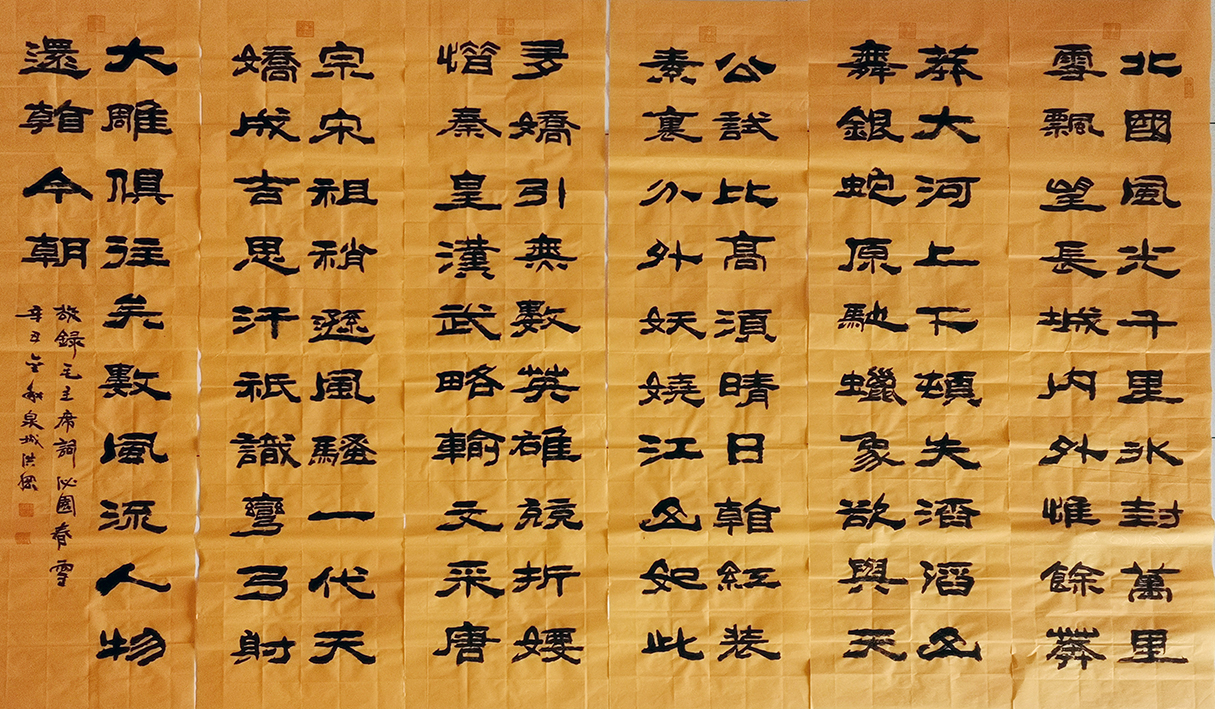 北國風光千里氷封萬里
雪飄望長城內外惟餘莽
莽大河上下頓失滔滔山
舞銀蛇原馳蠟象欲與天
公試比高須晴日看紅裝
素裹分外妖嬈江山如此
多嬌引無數英雄競折腰
惜秦皇漢武略輸文采唐
宗宋祖稍遜風騷一代天
嬌成吉思汗祇識彎弓射
大雕俱往矣數風流人物
還看今朝
敬錄毛主席詞沁園春雪
辛丑年秋泉城洪